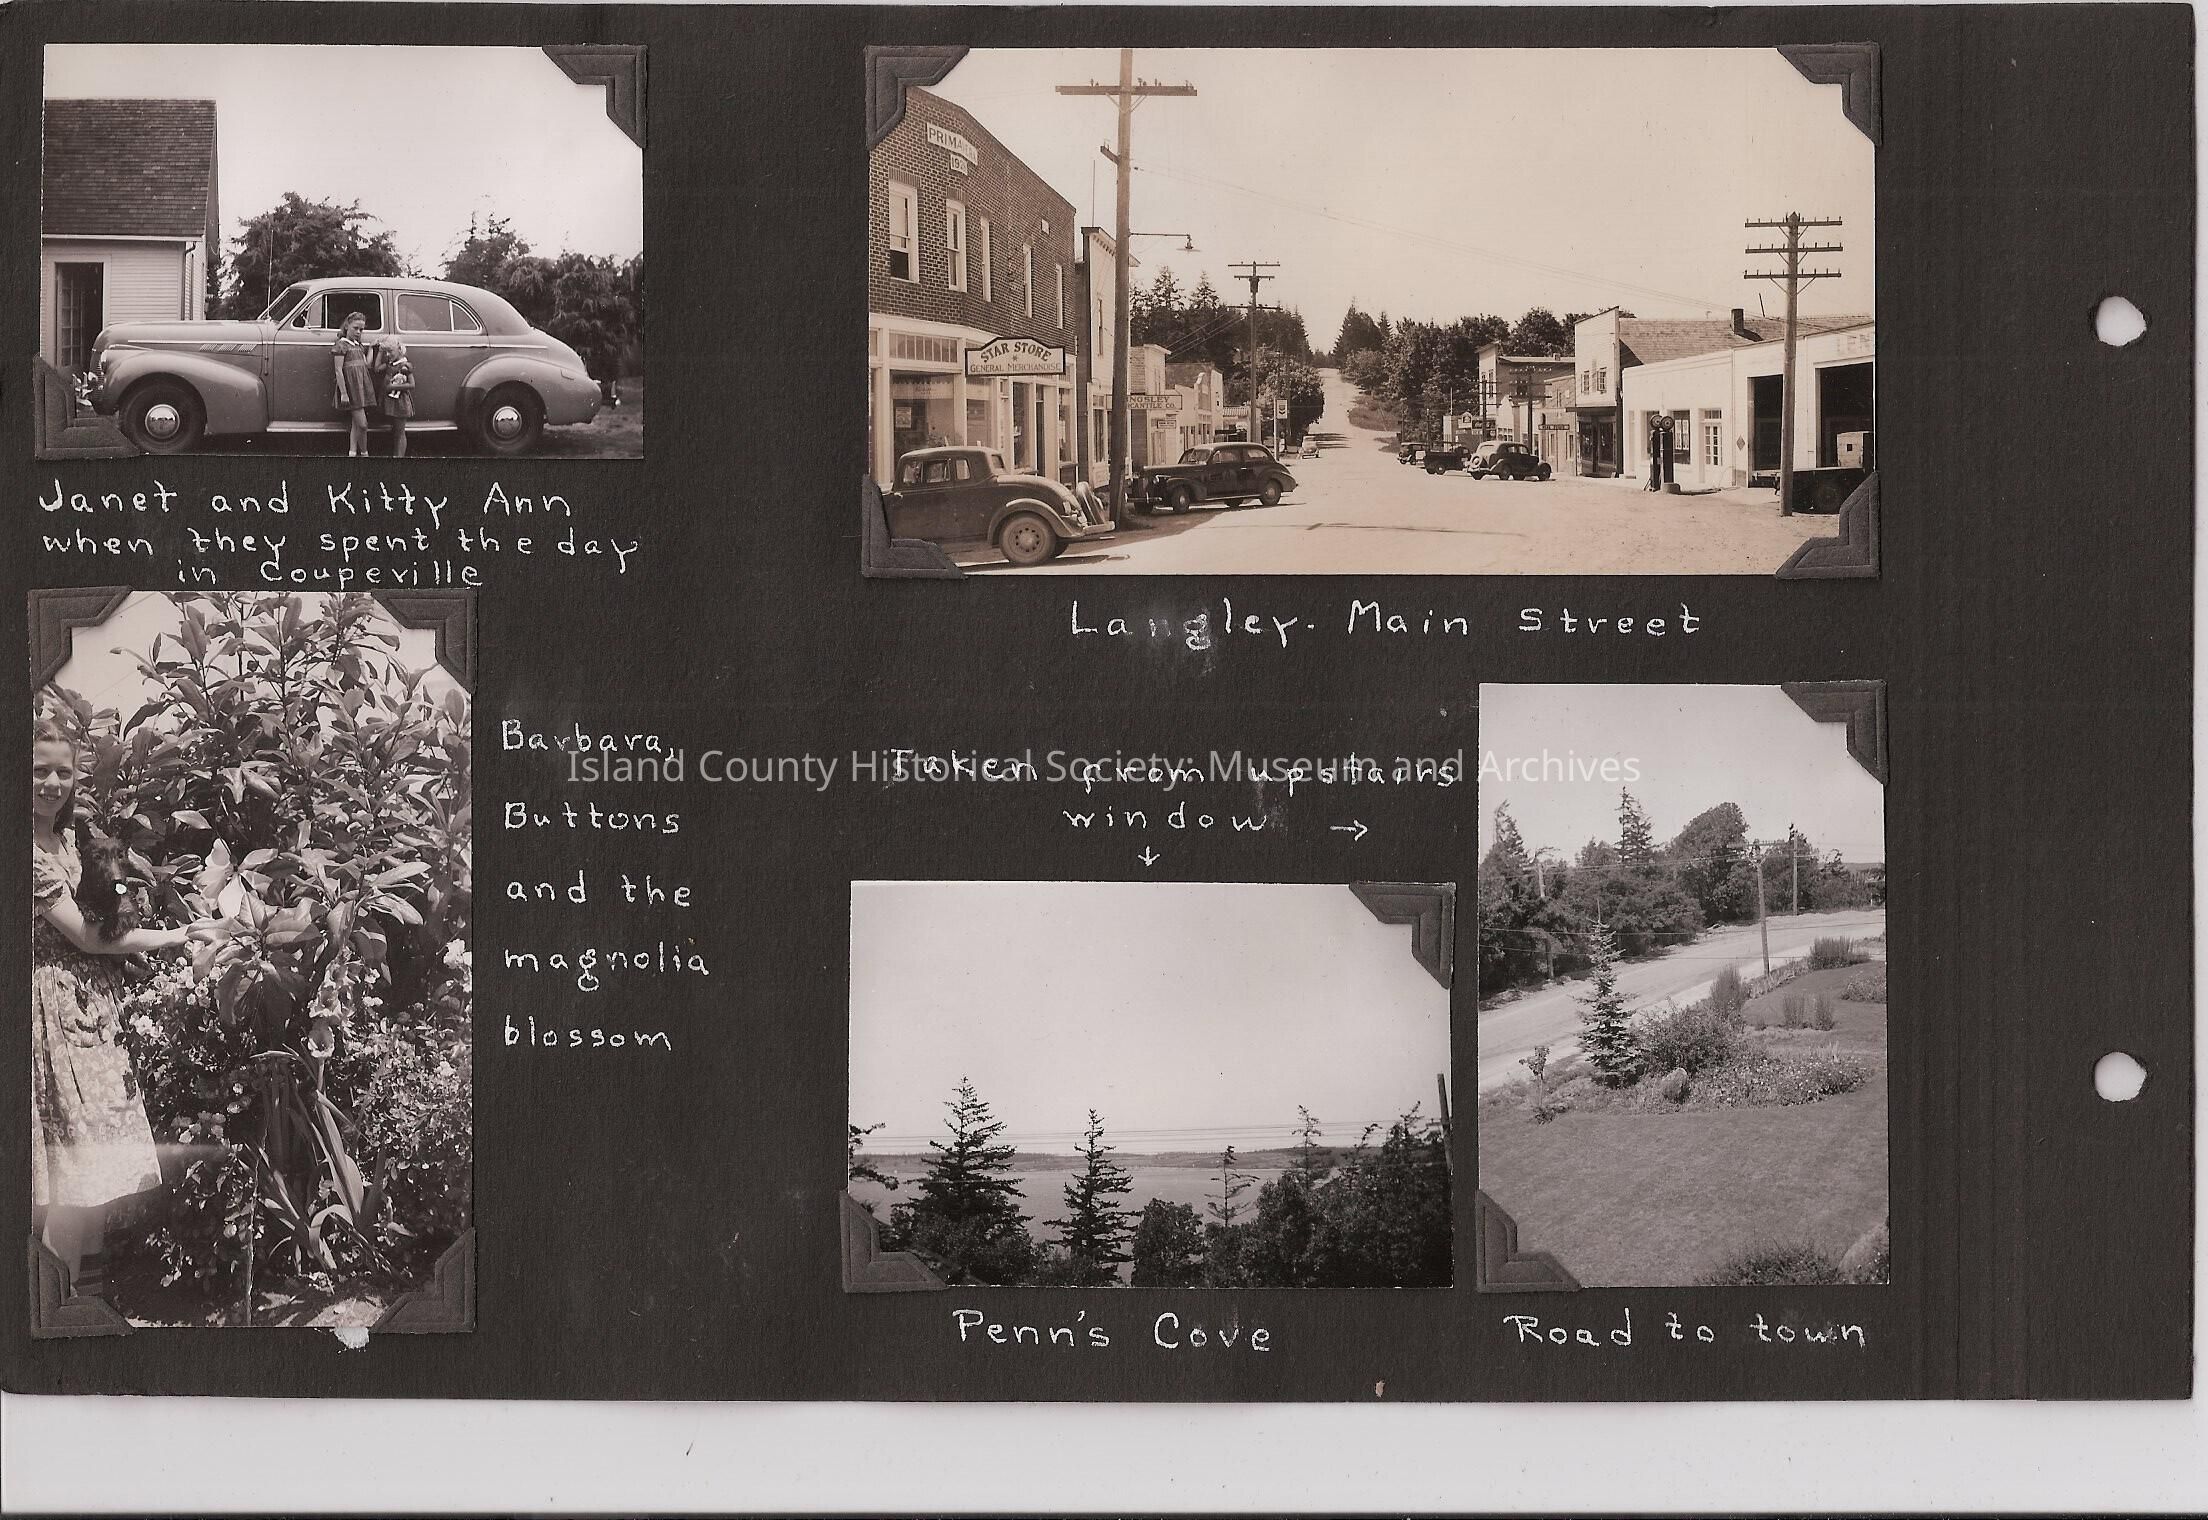 PRIMAVERA
STAR STORE
GENERAL MERCHANDISE
Janet and Kitty Ann
when they spent the day
in Coupeville
Langley. Main Street
Barbara,
Buttons
and the
magnolia
blossom
Taken from upstairs
window →
↓
Island County Historical Society: Museum and Archives
Penn's Cove
Road to town